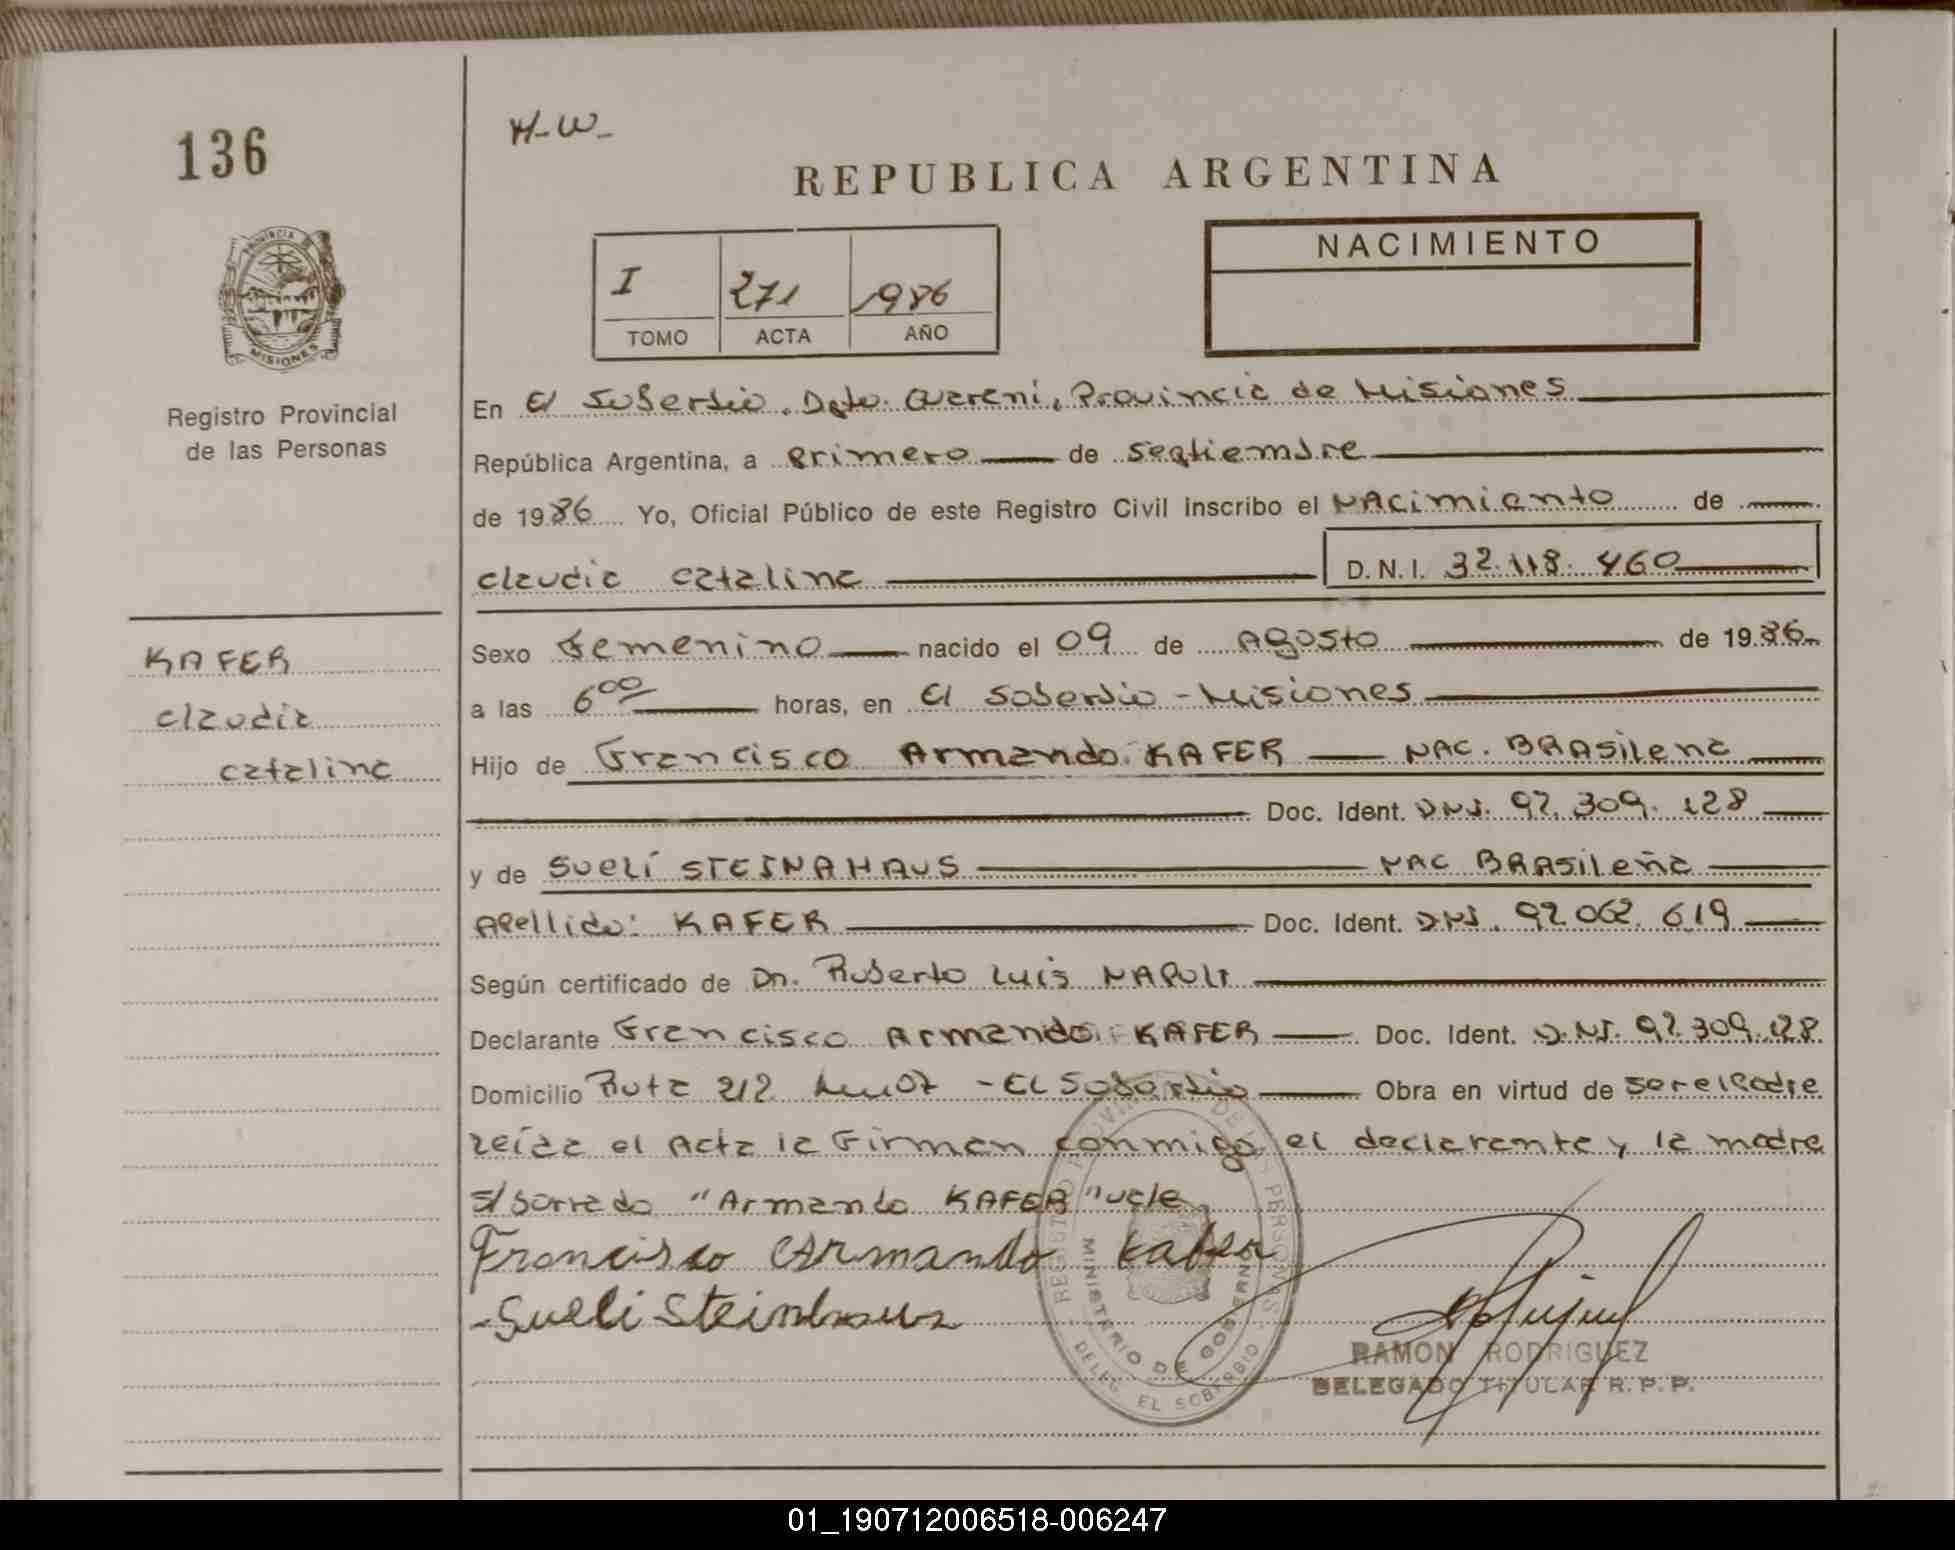 136
H-W-
REPUBLICA ARGENTINA
NACIMIENTO
I 271 1986
TOMO ACTA AÑO
PROVINCIA DE MISIONES
Registro Provincial
de las Personas
En El Soberbio. Dpto. Guarani, Provincia de Misiones
República Argentina, a primero de septiembre
de 1986 Yo, Oficial Público de este Registro Civil inscribo el NAcimiento de
claudia catalina D.N.I. 32.118.460
KAFER
claudia
catalina
Sexo Femenino nacido el 09 de Agosto de 1986
a las 6 00 horas, en El Soberbio - Misiones
Hijo de Francisco Armando KAFER NAC. BRASileña
Doc. Ident. DNI. 92.309.128
y de SUELÍ STEINAHAUS NAC BRASileña
Apellido: KAFER Doc. Ident. DNI. 92.062.619
Según certificado de Dn. Roberto Luis NAPOLI
Declarante Francisco Armando KAFER Doc. Ident. D.NI. 92.309.128
Domicilio Ruta 212 km 07 - El Soberbio Obra en virtud de ser el padre
leída el Acta la Firman conmigo el declarante y la madre
s/borrado "Armando KAFER" vale
Francisco Armando Kafer
- Sueli Steinhaus
REGISTRO PROVINCIAL DE LAS PERSONAS
MINISTERIO DE GOBIERNO
DELEG. EL SOBERBIO
RAMON RODRIGUEZ
DELEGADO TITULAR R. P. P.
01_190712006518-006247